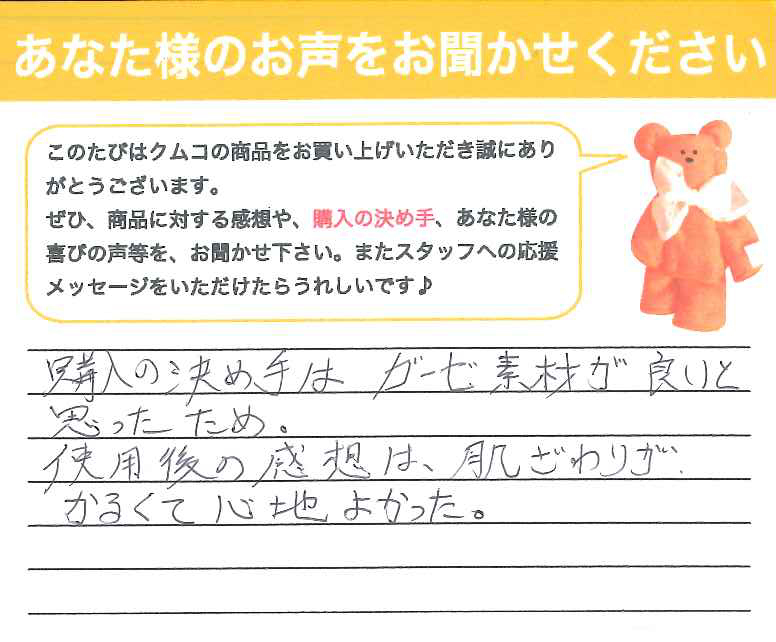 あなた様のお声をお聞かせください
このたびはクムコの商品をお買い上げいただき誠にあり
がとうございます。
ぜひ、商品に対する感想や、購入の決め手、あなた様の
喜びの声等を、お聞かせ下さい。またスタッフへの応援
メッセージをいただけたらうれしいです♪
購入の決め手は ガーゼ素材が良いと
思ったため。
使用後の感想は、肌ざわりが
かるくて心地よかった。